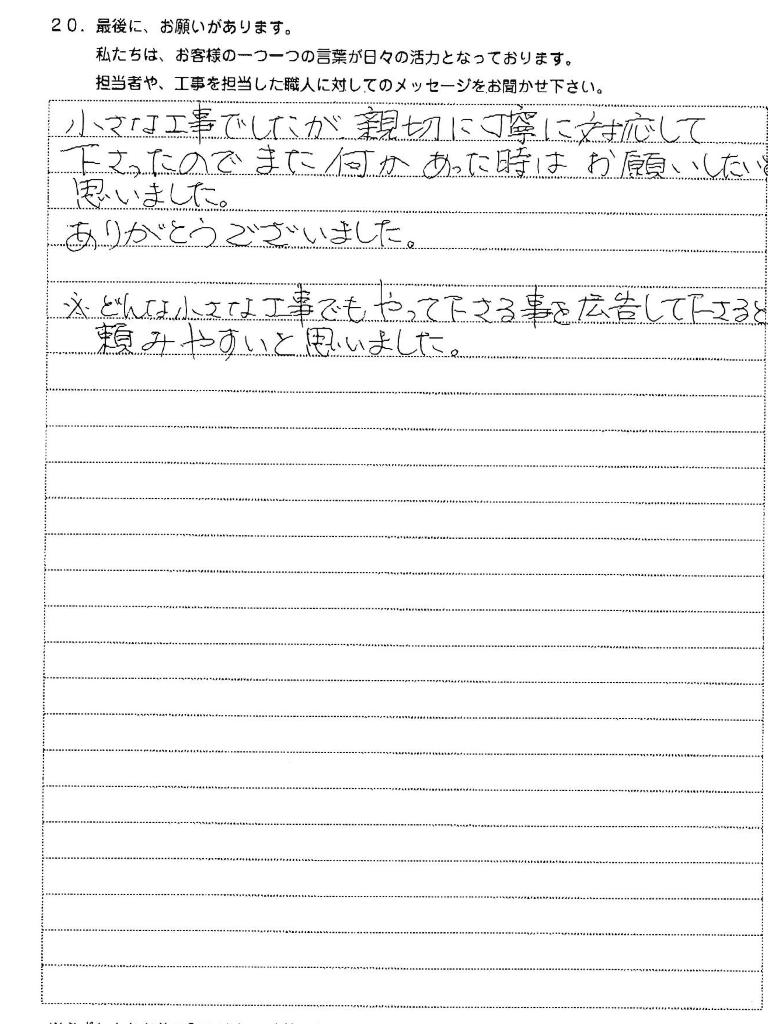 20. 最後に、お願いがあります。
私たちは、お客様の一つ一つの言葉が日々の活力となっております。
担当者や、工事を担当した職人に対してのメッセージをお聞かせ下さい。
小さな工事でしたが 親切に丁寧に対応して
下さったので また 何か あった時は お願いしたいと
思いました。
ありがとうございました。
※どんな小さな工事でも やって下さる事を広告して下さると
頼みやすいと思いました。